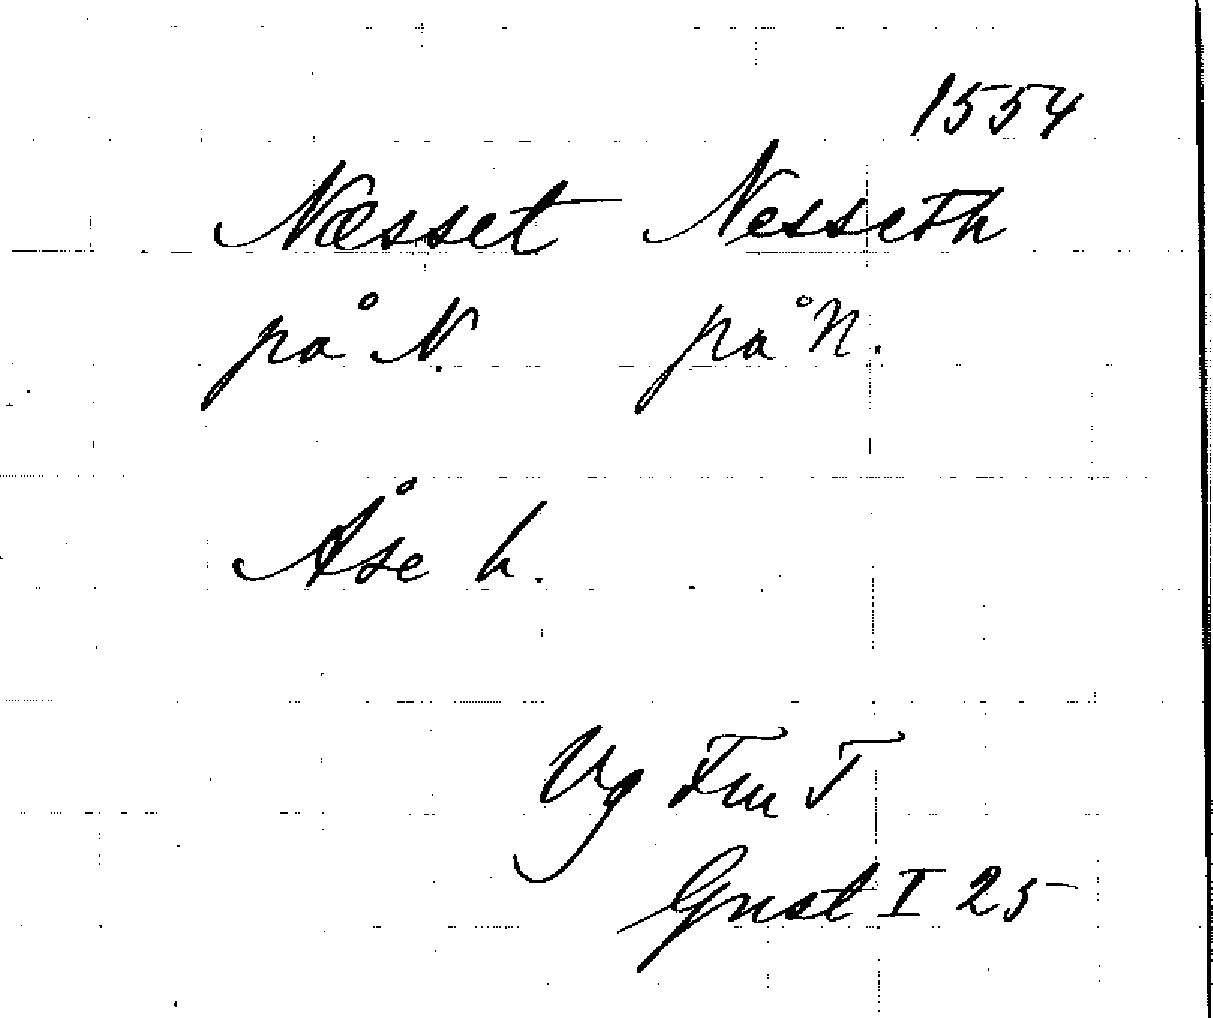 1554
Næsset Nesseth
på N. på N.
Åse h.
Vg Fm T
Gust I 25